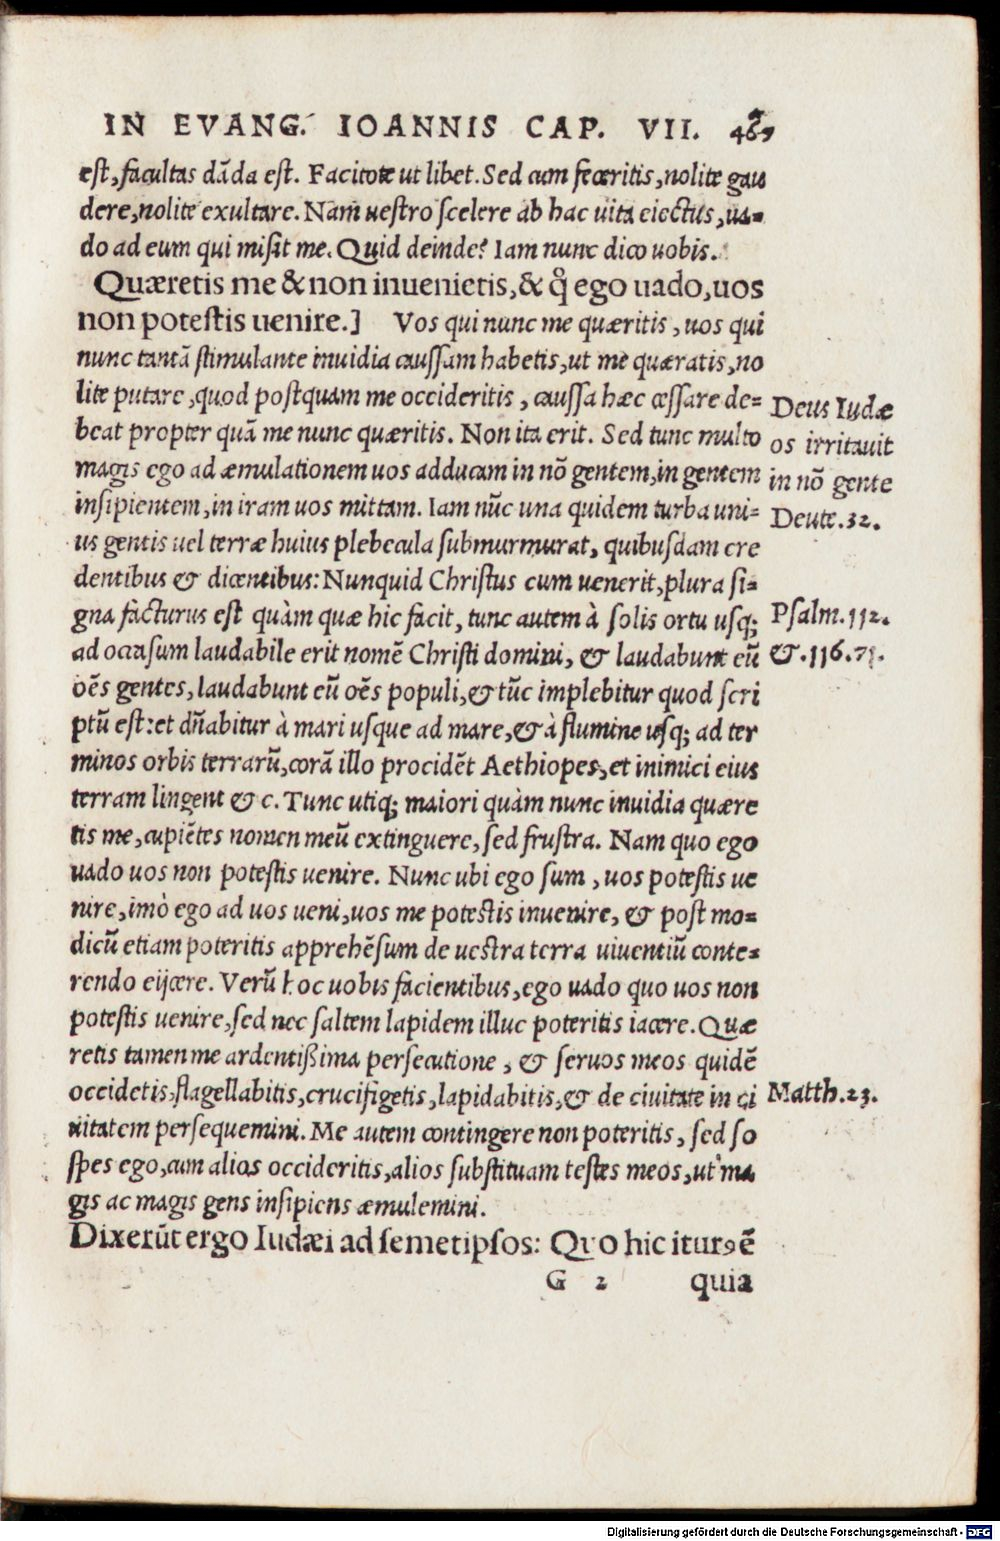 IN EVANG. IOANNIS CAP. VII. 489
est, facultas dāda est. Facitote ut libet. Sed cum feceritis, nolite gau
dere, nolite exultare. Nam uestro scelere ab hac uita eiectus, ua=
do ad eum qui misit me. Quid deinde? Iam nunc dico uobis.
Quæretis me & non inuenietis, & q̊ ego uado, uos
non potestis uenire.] Vos qui nunc me quæritis, uos qui
nunc tantā stimulante inuidia caussam habetis, ut me quæratis, no
lite putare, quod postquam me occideritis, caussa hæc cessare de=
beat propter quā me nunc quæritis. Non ita erit. Sed tunc multo
magis ego ad æmulationem uos adducam in nō gentem, in gentem
insipientem, in iram uos mittam. Iam nūc una quidem turba uni=
us gentis uel terræ huius plebecula submurmurat, quibusdam cre
dentibus & dicentibus: Nunquid Christus cum uenerit, plura si=
gna facturus est quàm quæ hic facit, tunc autem à solis ortu usq;
ad occasum laudabile erit nomē Christi domini, & laudabunt eū
oēs gentes, laudabunt eū oēs populi, & tūc implebitur quod scri
ptū est: et dñabitur à mari usque ad mare, & à flumine usq; ad ter
minos orbis terrarū, corā illo procidēt Aethiopes, et inimici eius
terram lingent & c. Tunc utiq; maiori quàm nunc inuidia quære
tis me, cupiētes nomen meū extinguere, sed frustra. Nam quo ego
uado uos non potestis uenire. Nunc ubi ego sum, uos potestis ue
nire, imò ego ad uos ueni, uos me potestis inuenire, & post mo=
dicū etiam poteritis apprehēsum de uestra terra uiuentiū conte=
rendo eijcere. Verū hoc uobis facientibus, ego uado quo uos non
potestis uenire, sed nec saltem lapidem illuc poteritis iacere. Quæ
retis tamen me ardentißima persecutione, & seruos meos quidē
occidetis, flagellabitis, crucifigetis, lapidabitis, & de ciuitate in ci
uitatem persequemini. Me autem contingere non poteritis, sed so
spes ego, cum alios occideritis, alios substituam testes meos, ut ma
gis ac magis gens insipiens æmulemini.
Dixerūt ergo Iudæi ad semetipsos: Quo hic iturꝯ ē
G 2 quia
Deus Iudæ
os irritauit
in nō gente
Deute. 32.
Psalm. 112.
&. 116. 71.
Matth. 23.
Digitalisierung gefördert durch die Deutsche Forschungsgemeinschaft - DFG